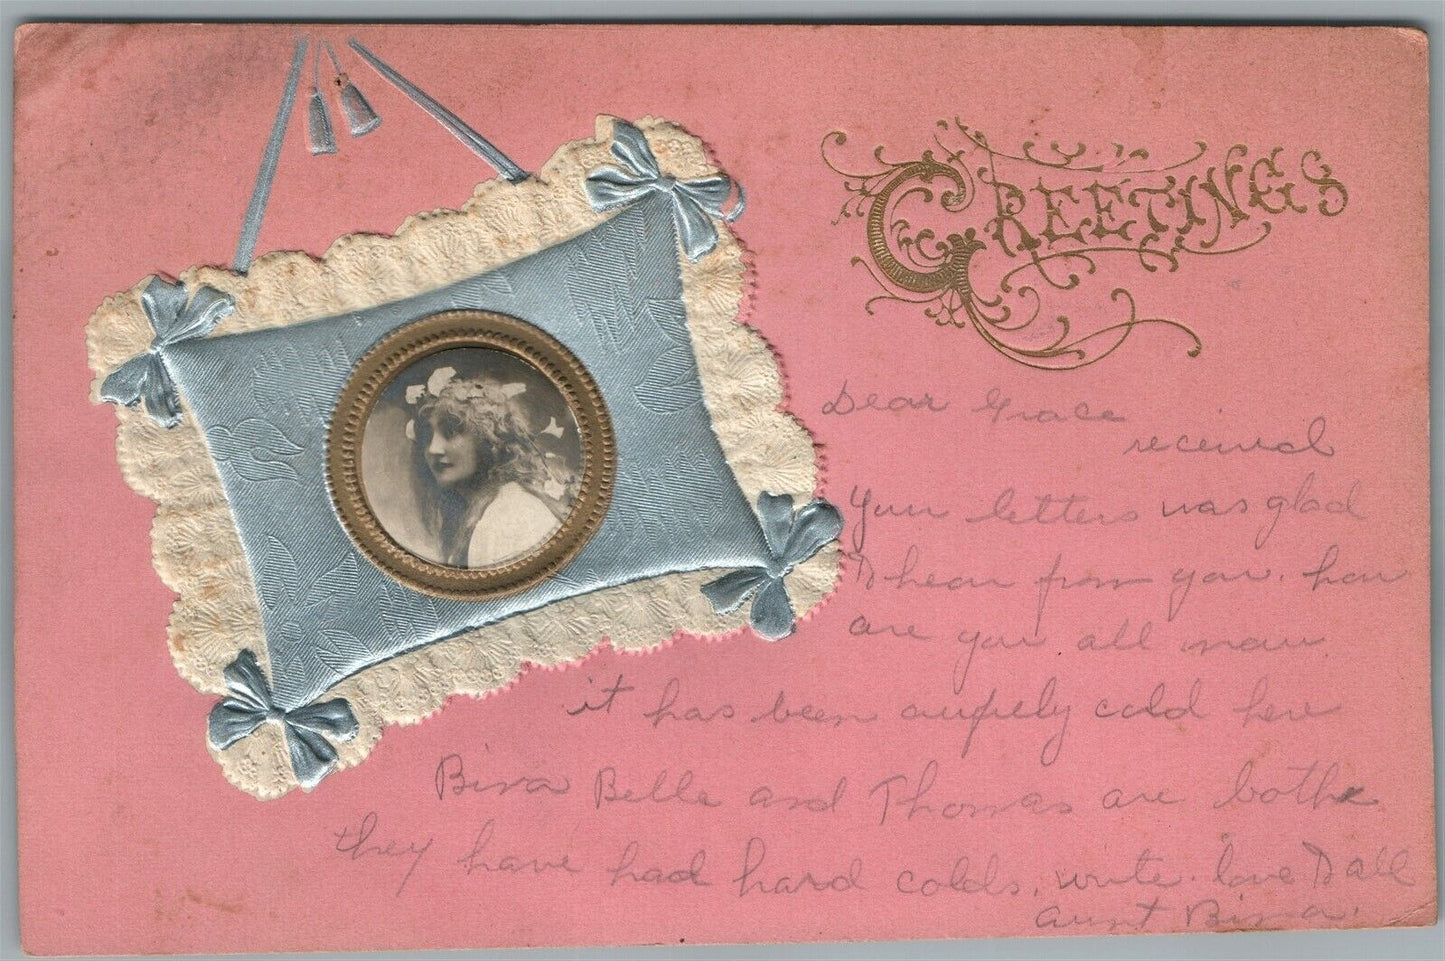 GREETINGS
Dear Grace
received
your letters was glad
to hear from you. how
are you all now.
it has been awfely cold here
Bina Belle and Thomas are both
they have had hard colds. write. love to all
aunt Bina.